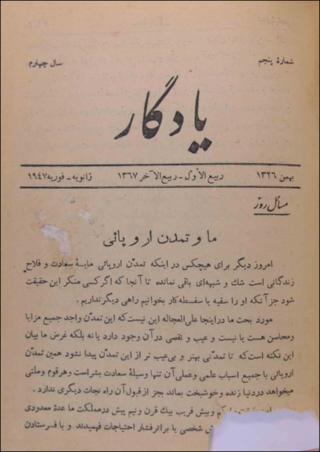 شمارهٔ پنجم
سال چهارم
یادگار
بهمن ۱۳۲۶
ربیع‌الاول - ربیع‌الآخر ۱۳۶۷
ژانویه - فوریهٔ ۱۹۴۷
مسائل روز
ما و تمدن اروپائی
امروز دیگر برای هیچکس در اینکه تمدن اروپائی مایهٔ سعادت و فلاح
زندگانی است شک و شبهه‌ای باقی نمانده تا آنجا که اگر کسی منکر این حقیقت
شود جز آنکه او را سفیه یا سفسطه‌کار بخوانیم راهی دیگر نداریم.
مورد بحث ما در اینجا علی‌العجاله این نیست که این تمدن واجد جمیع مزایا
ومحاسن هست یا نیست و عیب و نقصی در آن وجود دارد یا نه بلکه غرض ما بیان
این نکته است که تا تمدنی بهتر و بی‌عیب تر از این تمدن پیدا نشود همین تمدن
اروپائی با جمیع اسباب علمی و عملی آن تنها وسیلهٔ سعادت بشر است و هر قوم و ملتی
میخواهد در دنیا زنده و خوشبخت بماند بجز از قبول آن راه نجات دیگری ندارد.
و بیش قریب بیک قرن و نیم پیش در مملکت ما عدهٔ معدودی
شخصی یا بر اثر فشار احتیاجات فهمیدند و با فرستادن